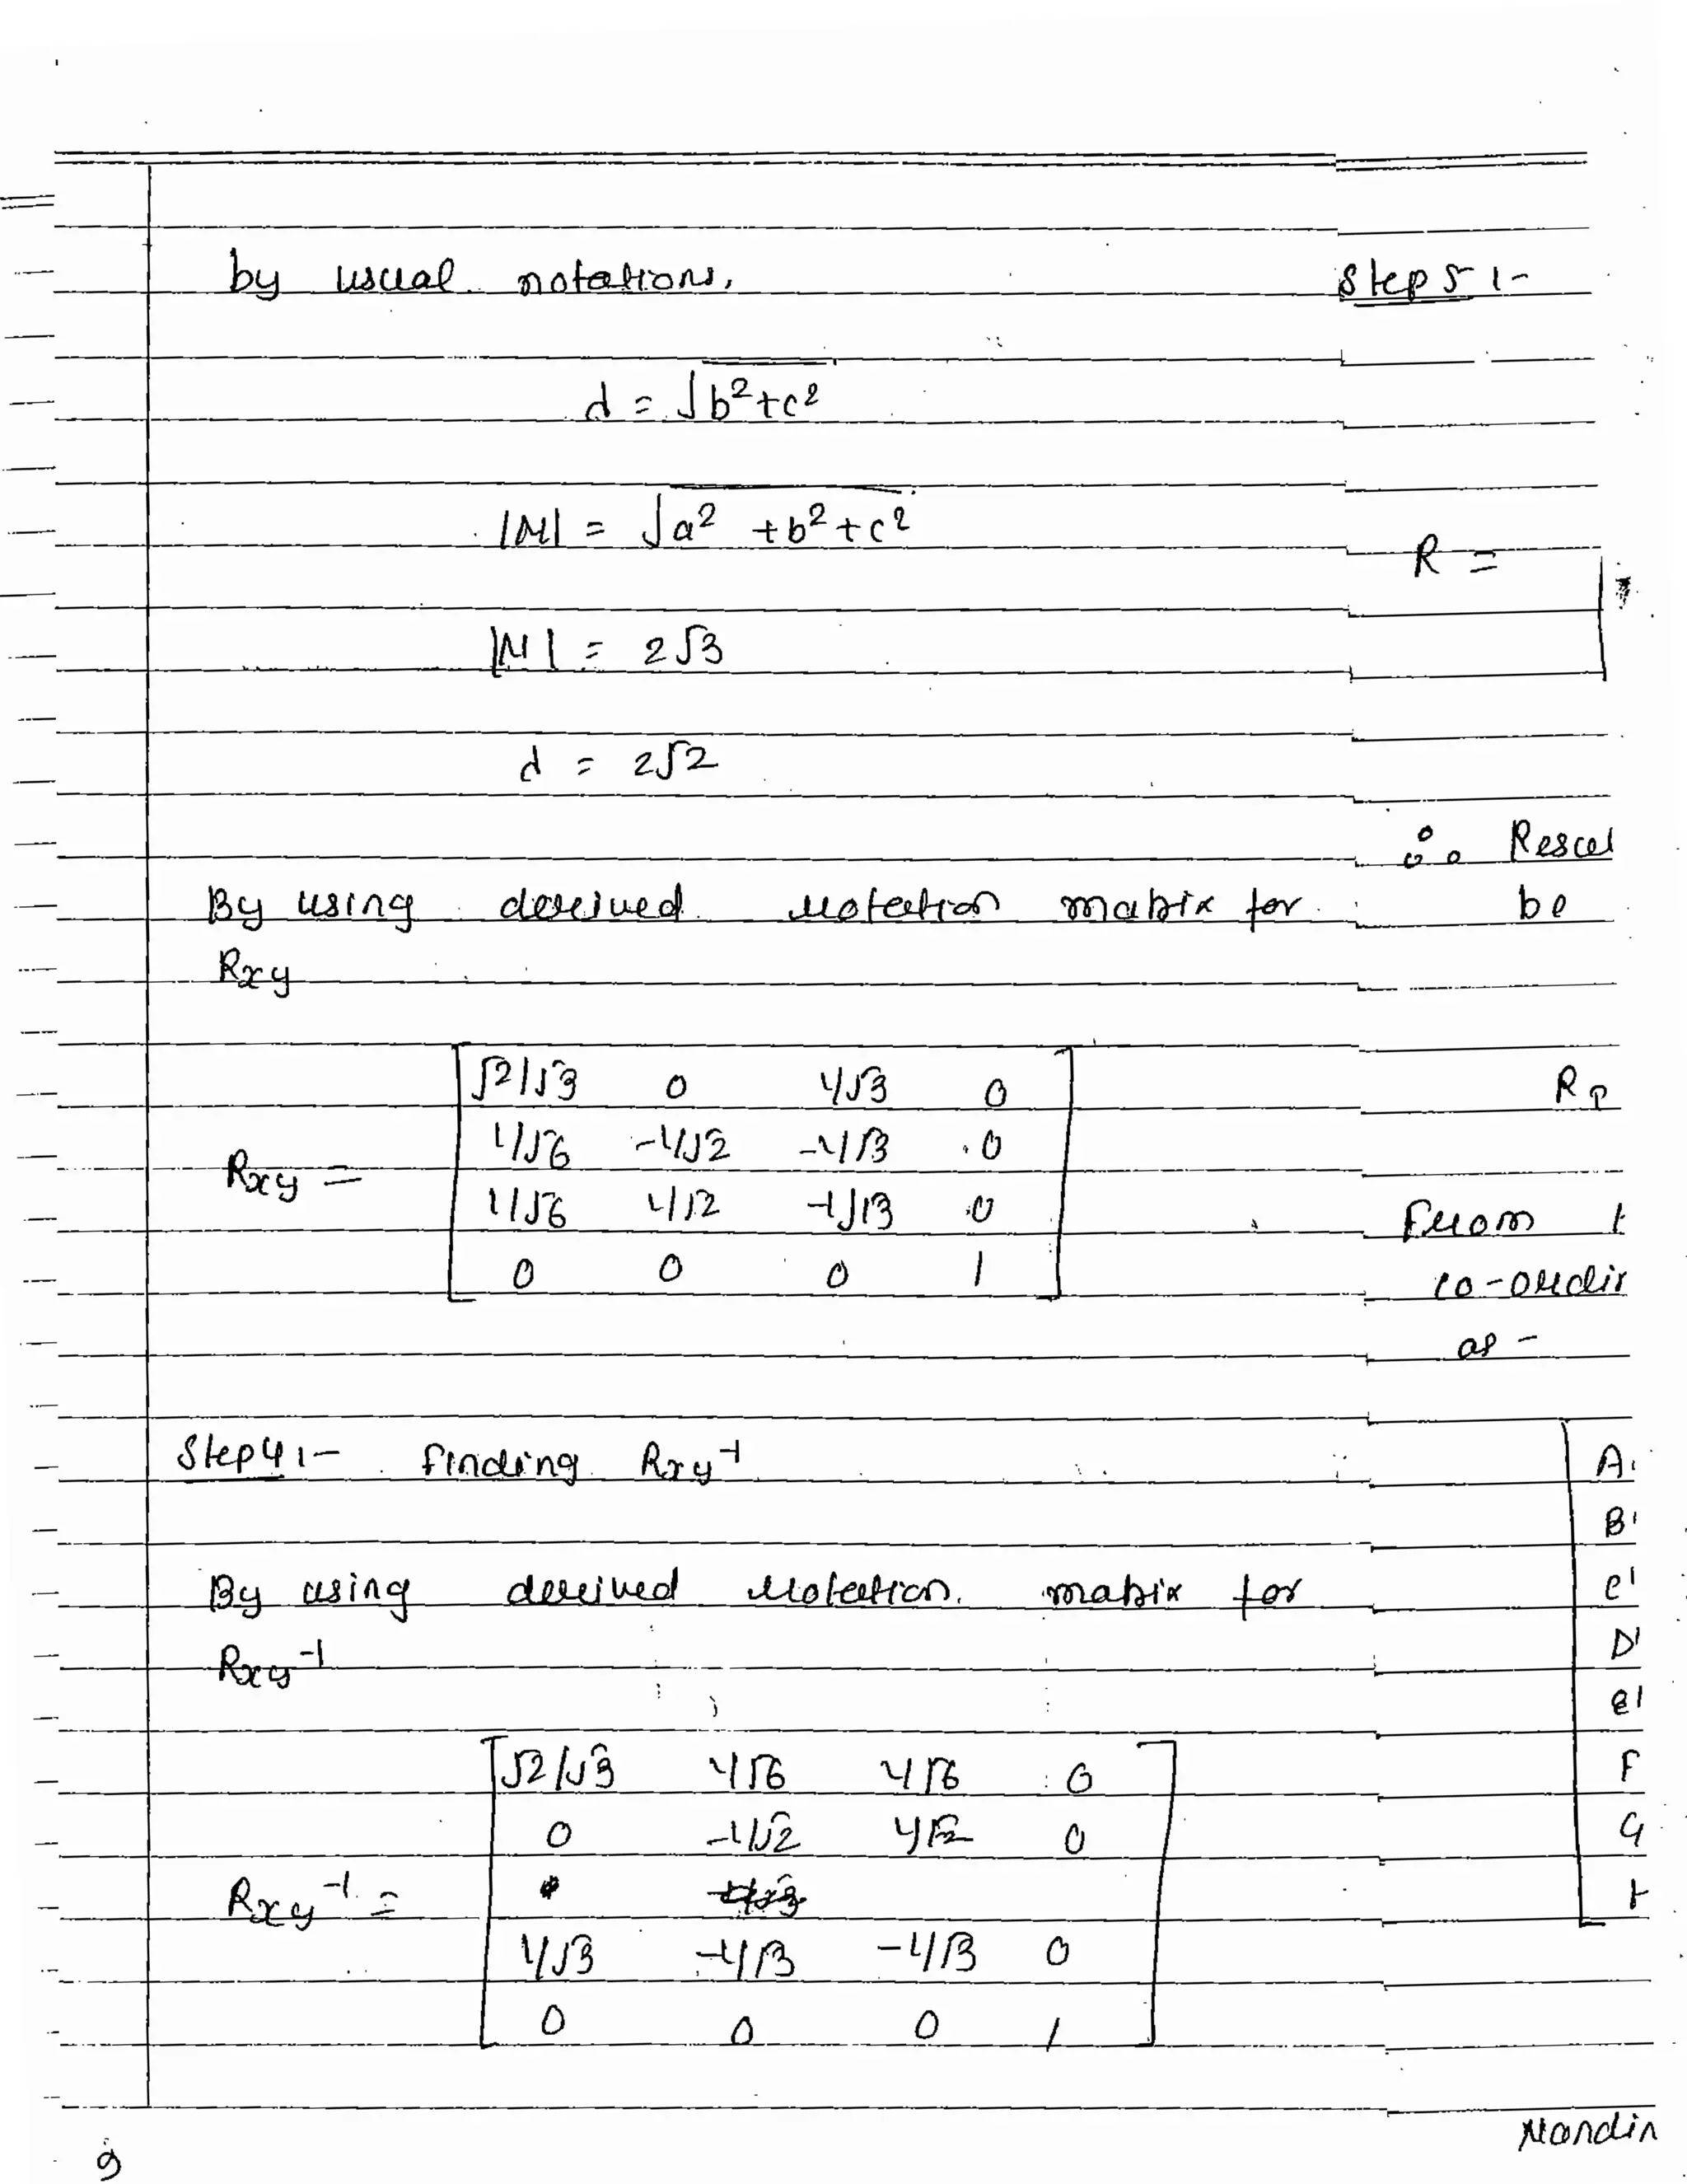 by usual notations,
d = √b²+c²
|N| = √a² + b² + c²
|N| = 2√3
d = 2√2
By using derived rotation matrix for
Rxy
Rxy =
√2/√3 0 1/√3 0
1/√6 -1/√2 -1/√3 0
1/√6 1/√2 -1/√3 0
0 0 0 1
Step 4 :- Finding Rxy⁻¹
By using derived rotation matrix for
Rxy⁻¹
Rxy⁻¹ =
√2/√3 1/√6 1/√6 0
0 -1/√2 1/√2 0
1/√3 -1/√3 -1/√3 0
0 0 0 1
9
Step 5 :-
R =
∴ Resul
be
Rp
From t
co-ordin
as -
A'
B'
C'
D'
E'
F
G
Nandin